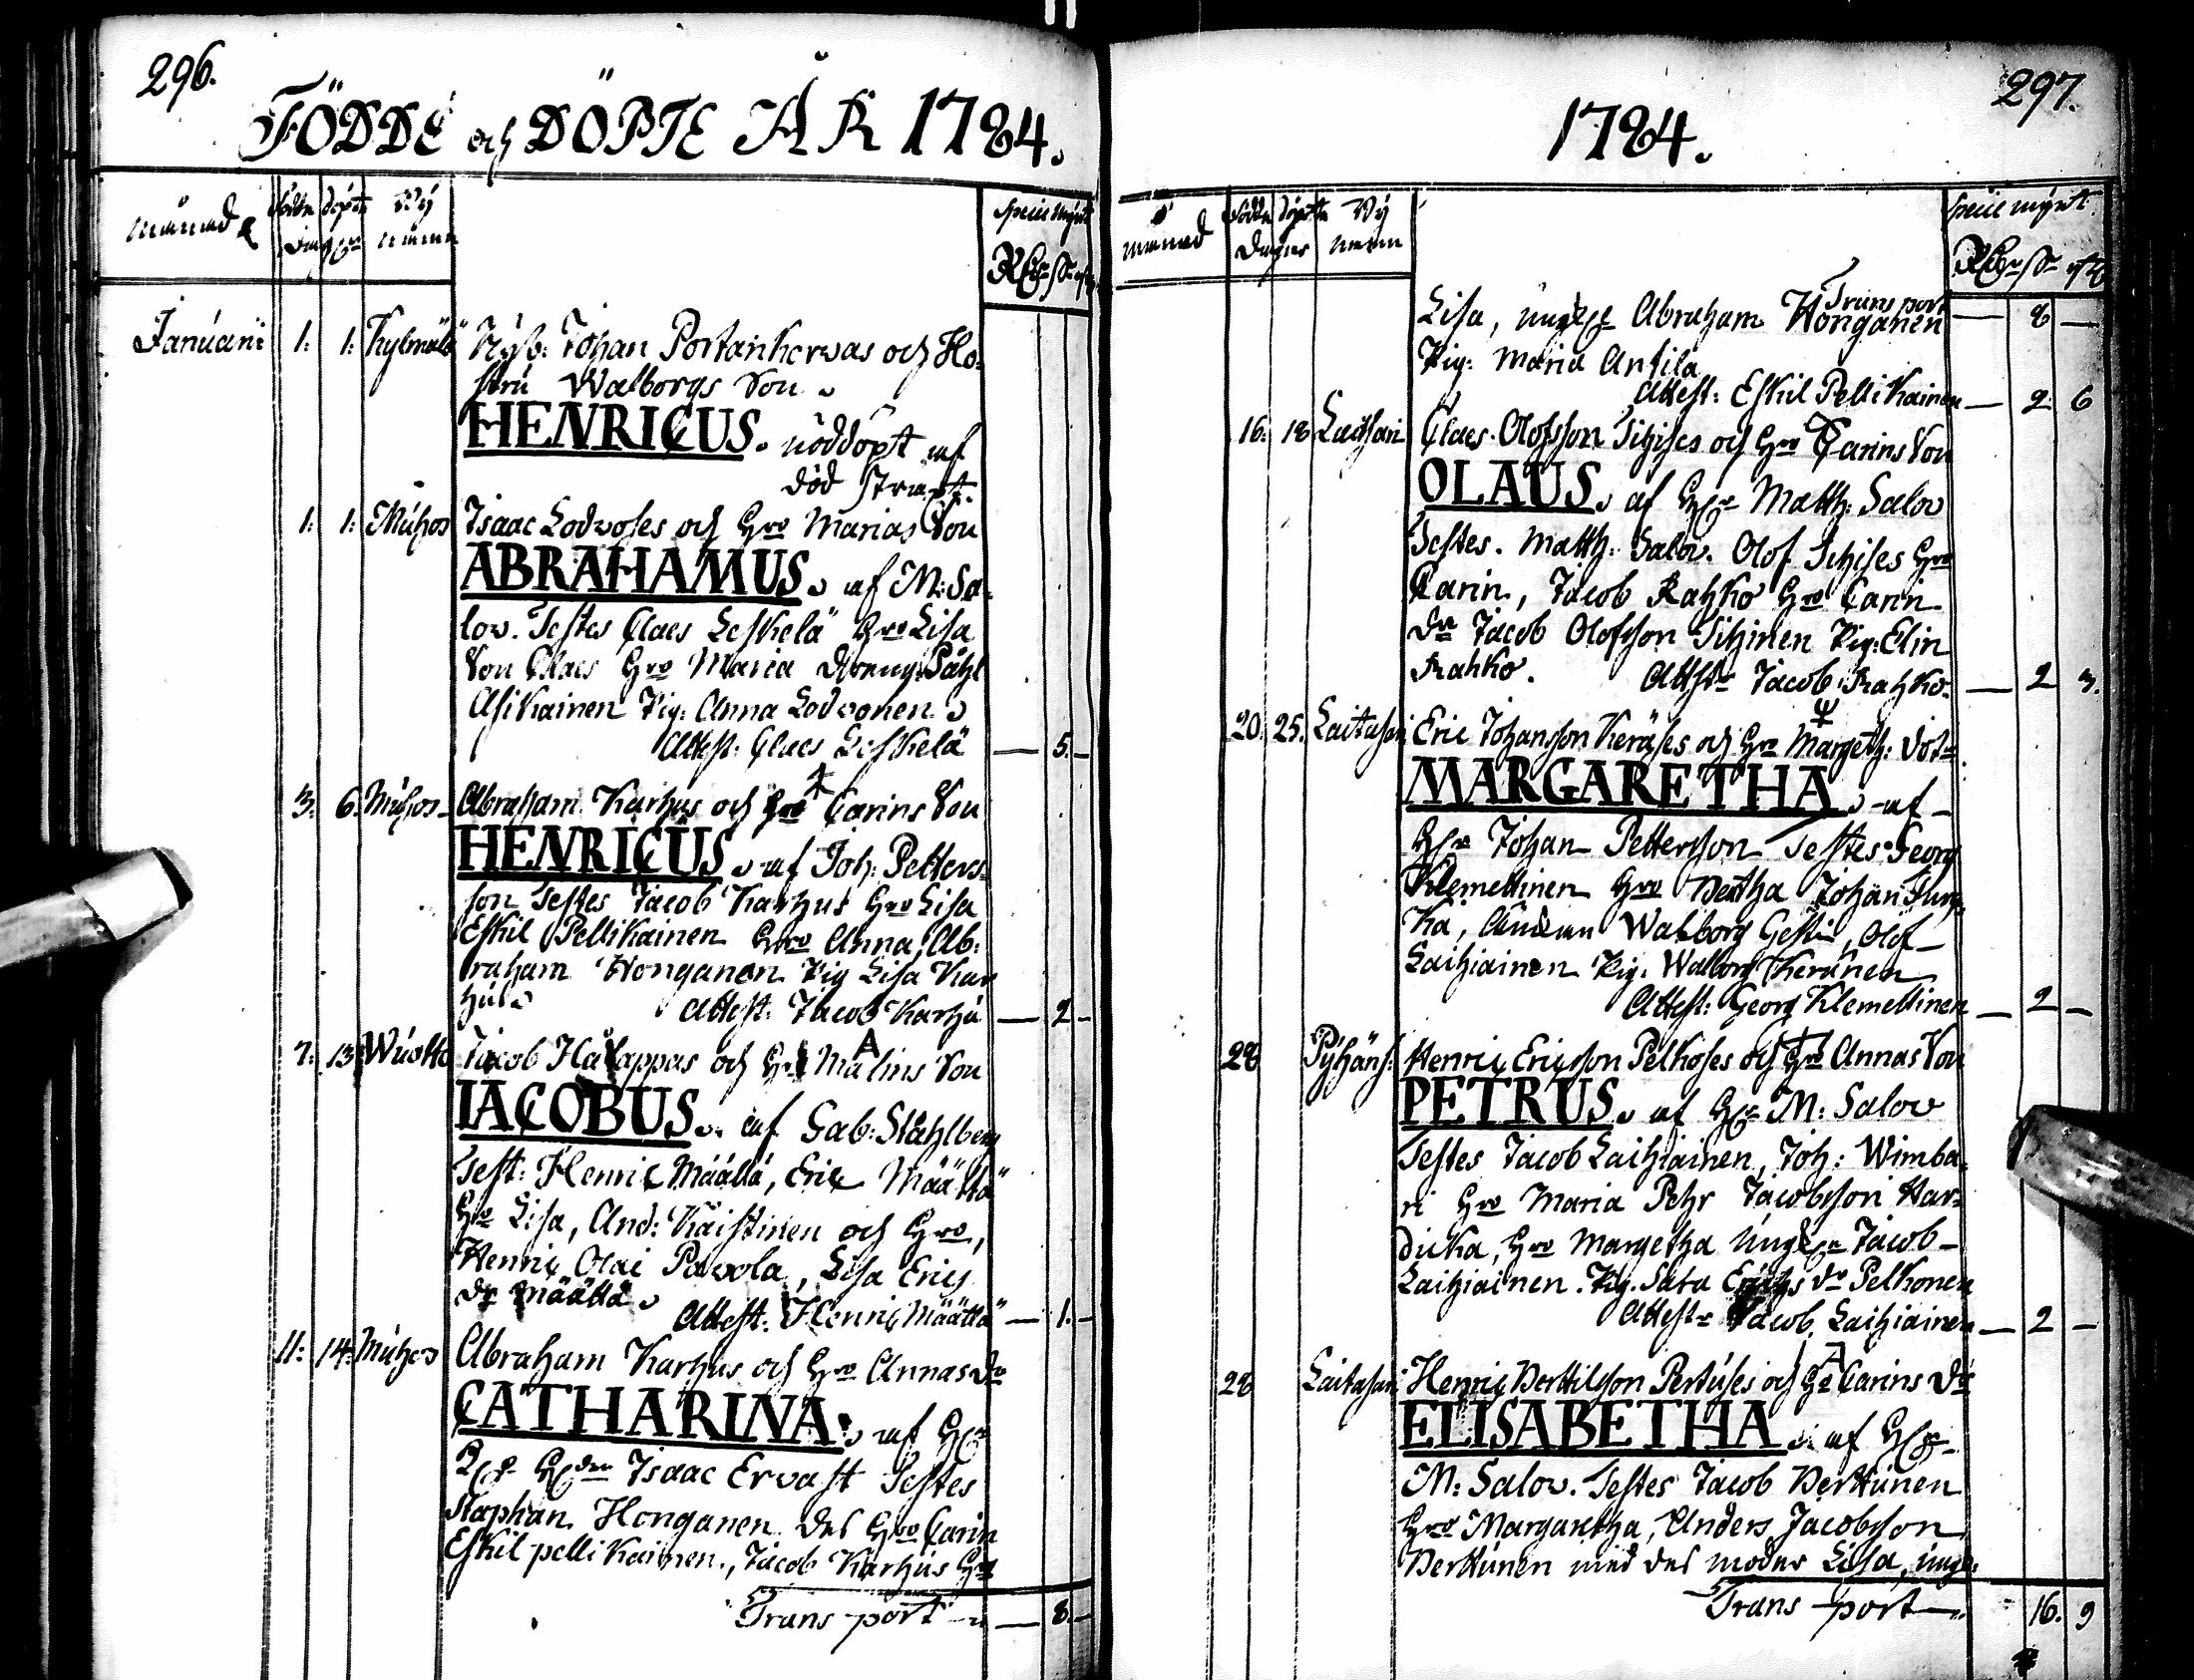 296.
FÖDDE och DÖPTE ÅR 1784.
månad födde döpte By specie mynt
Dagar namn R. s. r.
Januari 1. 1. Kylmälä Nyb: Johan Portankorwas och Ho
stru Walborgs Son
HENRICUS. nöddöpt af
död straxt.
1. 1. Muhos Isaac Lodwoses och Hro Marias Son
ABRAHAMUS. af M: Sa
low. Testes Claes Leskelä Hro Lisa
Son Claes Hro Maria dräng Påhl
Asikainen Pig: Anna Lodvonen.
Attest: Claes Leskelä — 5. —
3. 6. Muhos Abraham Karhus och Hro Carins Son
HENRICUS. af Joh: Petters
son Testes Jacob Karhus Hro Lisa
Eskil Pellikainen Hro Anna, Ab:
raham Honganen Pig Lisa Kar
hu
Attest: Jacob Karhu — 2 —
7. 13. Wuotto Jacob Halappas och Hro Malins Son
IACOBUS. af Gab: Ståhlberg
Test: Henric Määttä, Eric Määttä
Hro Lisa, And: Käistinen och Hro,
Henric Olai Pavola, Lisa Erics
dr Määttä
Attest: Henric Määttä — 1. —
11. 14. Muhos Abraham Karhus och Hro Annas dr
CATHARINA. af
Isaac Ervast Testes
Staphan Honganen des Hro Carin
Eskil pellikainen, Jacob Karhus Hro
Trans port — 8. —
297.
1784.
månad födde döpte By specie mynt.
Dagar namn R. s. r.
Trans port — 8 —
Lisa, ungk. Abraham Honganen
Pig: Maria Antila
Attest: Eskil Pellikainen — 2 6
16. 18 Laitasari Claes Olofsson Tihises och Hro Carins Son
OLAUS. af H. Matth: Salow
Testes. Matth: Salow. Olof Tihises Hro
Carin, Jacob Rahko Hro Carin
dr Jacob Olofsson Tihinen Pig: Elin
Rahko. Attest Jacob Rahko. — 2 3.
20. 25. Laitasari Eric Johansson Keräses och Hro Margeth: dotr
MARGARETHA. af
H. Johan Pettersson Testes Georg
Klemettinen Hro Bertha Johan Jun
ka, Änkan Walborg Olof
Laihiainen Pig: Walborg Keränen
Attest: Georg Klemettinen — 2 —
28 Pyhäns: Henric Ericsson Pelkoses och Hro Annas Son
PETRUS. af H. M: Salow
Testes Jacob Laihiainen, Joh: Wimba
ri Hro Maria Pehr Jacobsson Har
duka, Hro Margetha ungk. Jacob
Laihiainen. Pig. Sara Erichs dr Pelkonen
Attest Jacob Laihiainen — 2 —
28 Laitasari Henric Bertilson Pertuses och Hro Carins dr
ELISABETHA. af H.
M: Salow. Testes Jacob Perttunen
Hro Margaretha, Anders Jacobsson
Perttunen med des moder Lisa, ungk:
Trans port — 16. 9